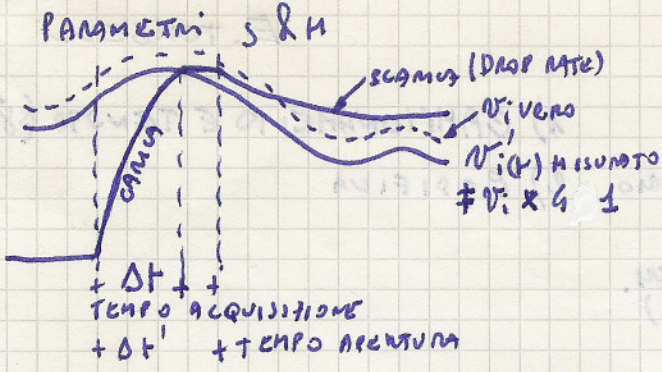 PARAMETRI S & H
SCARICA (DROP RATE)
CARICA
vi VERO
vi'(t) MISURATO
≠ vi x G 1
+ Δt + +
TEMPO ACQUISIZIONE
+ Δt' + TEMPO APERTURA